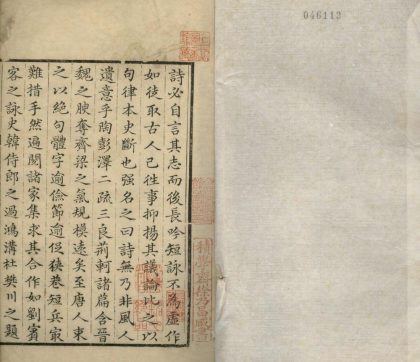 046112
詩必自言其志而後長吟短詠不為虛作
如徒取古人已往事抑揚其議論比之以
句律本史斷也強名之曰詩無乃非風人
遺意乎陶彭澤二疏三良荊軻諸篇含晉
魏之腴奪齊梁之氣規模遠矣至唐人束
之以絕句體字逾儉節逾促狹巷短兵㝡
難措手然遍閱諸家集求其合作如劉賓
客之詠史韓侍郎之過鴻溝杜樊川之題